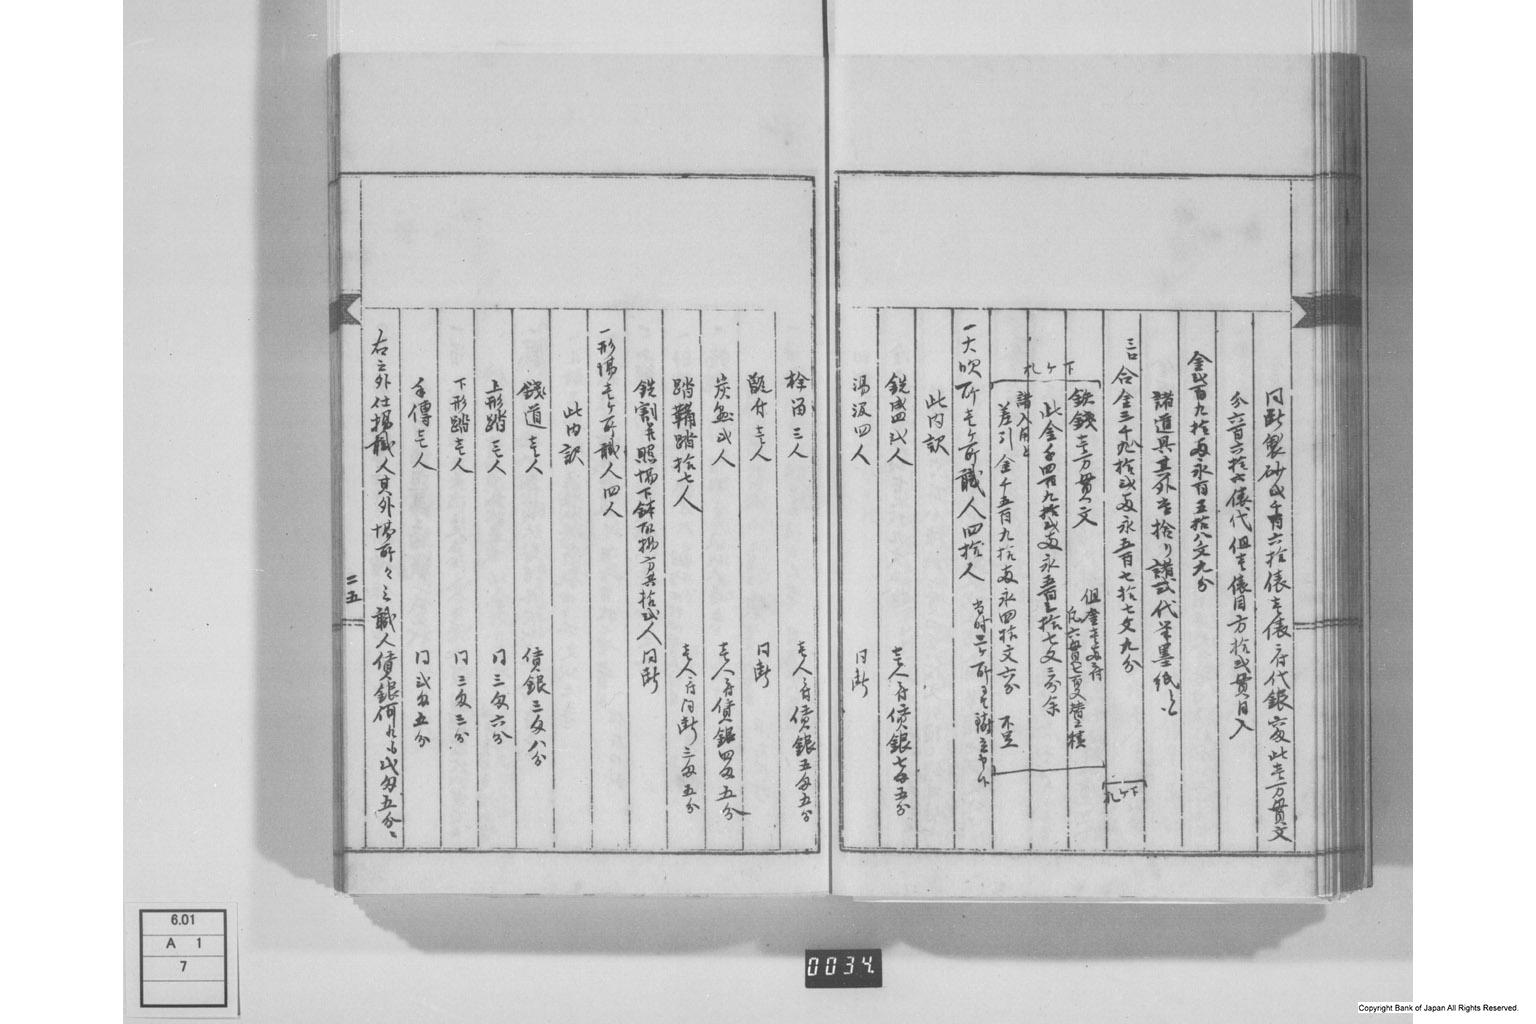 同断製砂弐千百六拾俵壱俵ニ付代銀六匁此壱万貫文
分六百六拾六俵代但壱俵目方拾弐貫目入
金弐百九拾両永百五拾八文九分
諸道具其外吉捨り諸式代筆墨紙
三口合金三千九拾弐両永五百七拾七文九分
下ケ札
下ケ札
鉄銭壱万貫文
但当壱両ニ付
凡六貫七百文替之積
此金千四百九拾弐両永五百三拾七文三分余
諸入用と
差引金千五百九拾両永四拾文六分 不足
一大吹所壱ケ所職人四拾人
此内訳
銑成四弐人 壱人ニ付賃銀七匁五分
湯汲四人 同断
栓留三人 壱人ニ付賃銀五匁五分
甑付壱人 同断
炭並弐人 壱人ニ付賃銀四匁五分
踏鞴踏拾七人 壱人ニ付同断三匁五分
銑割并照場下鉢取扱方共拾弐人 同断
一形場壱ケ所職人四人
此内訳
銭道壱人 賃銀三匁八分
上形踏壱人 同三匁六分
下形踏壱人 同三匁三分
手傳壱人 同弐匁五分
右之外仕揚職人其外場所々之職人賃銀何れも弐匁五分
二五
6.01
A 1
7
0034
Copyright Bank of Japan All Rights Reserved.